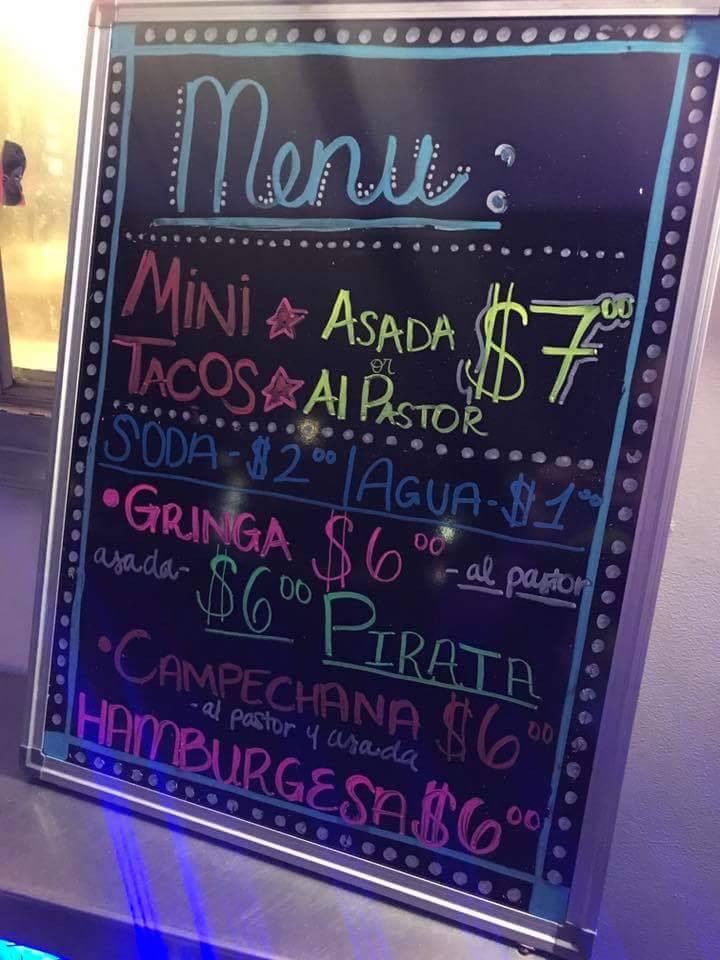 Menu:
MINI ASADA $7.00
or
TACOS Al PASTOR
SODA - $2.00 | AGUA - $1.00
• GRINGA $6.00 - al pastor
asada - $6.00 PIRATA
• CAMPECHANA $6.00
- al pastor y asada
HAMBURGESA $6.00